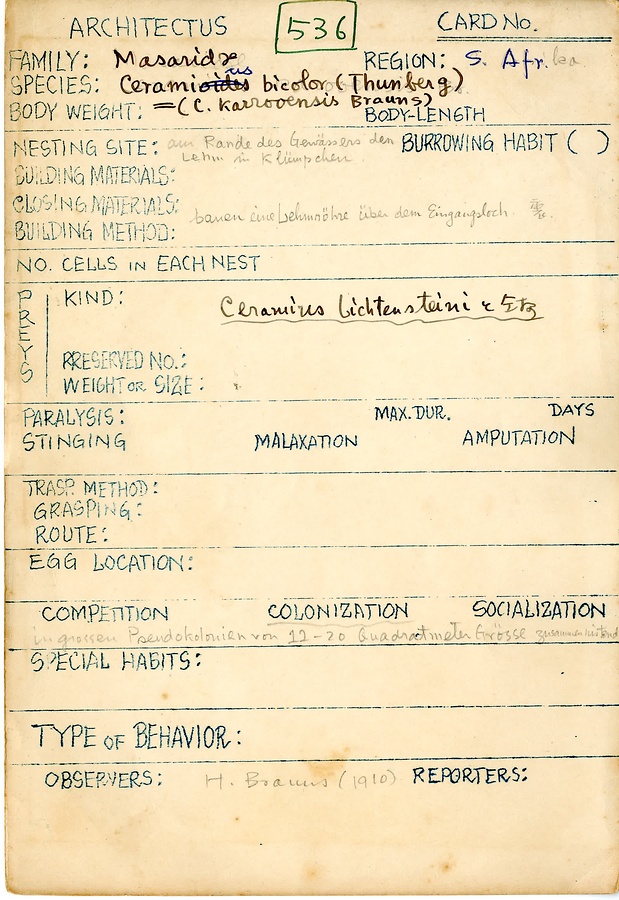 ARCHITECTUS 536 CARD NO.
FAMILY: Masaridæ REGION: S. Afrika
SPECIES: Ceramius bicolor (Thunberg)
BODY WEIGHT: =(C. Karrooensis Brauns) BODY-LENGTH
NESTING SITE: am Rande des Gewässers den BURROWING HABIT ( )
Lehm in Klümpchen
BUILDING MATERIALS:
CLOSING MATERIALS:
bauen eine Lehmröhre über dem Eingangsloch.
BUILDING METHOD:
NO. CELLS IN EACH NEST
PREYS
KIND:
Ceramius Lichtensteini
PRESERVED NO.:
WEIGHT OR SIZE:
PARALYSIS: MAX. DUR. DAYS
STINGING MALAXATION AMPUTATION
TRASP. METHOD:
GRASPING:
ROUTE:
EGG LOCATION:
COMPETITION COLONIZATION SOCIALIZATION
in grossen Pseudokolonien von 12-20 Quadratmeter Grösse
SPECIAL HABITS:
TYPE OF BEHAVIOR:
OBSERVERS: H. Brauns (1910) REPORTERS: